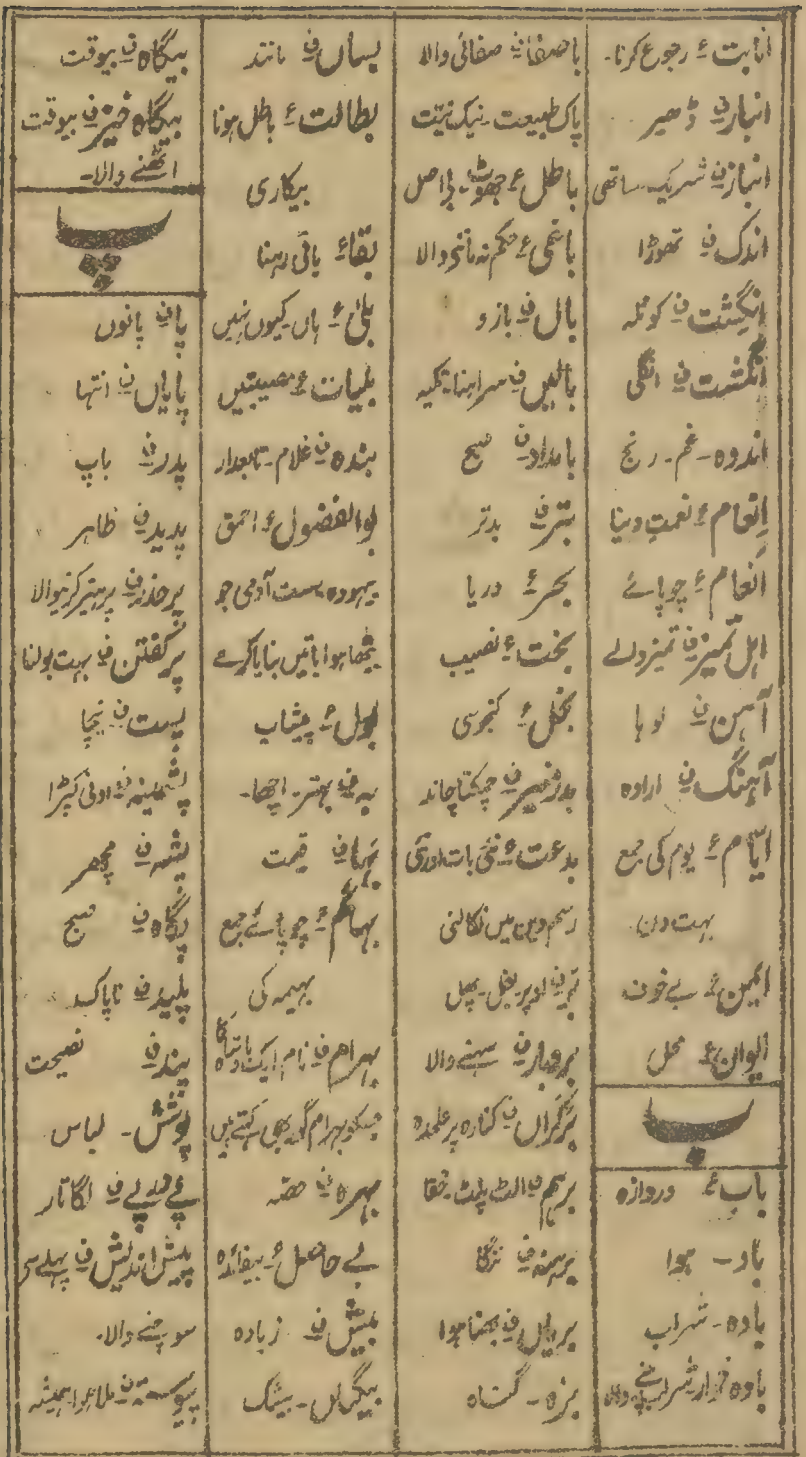 انابت ع رجوع کرنا۔
انبار ف ڈھیر
انباز ف شریک۔ ساتھی
اندک ف تھوڑا
انگِشت ف کوئلہ
انگُشت ف انگلی
اندوہ۔ غم۔ رنج
اِنعام ع نعمت دینا
اَنعام ع چوپائے
اہل تمیز ف تمیز والے
آہن ف لوہا
آہنگ ف ارادہ
ایّام ع یوم کی جمع
بہت دن۔
ایمن ع بے خوف
ایوان ع محل
ب
باب ع دروازہ
باد۔ ہوا
بادہ۔ شراب
بادہ خوار شراب پینے والا
باصفا ف صفائی والا
پاک طبیعت۔ نیک نیت
باطل ع جھوٹ۔ بے اصل
باغی ع حکم نہ ماننے والا
بال ف بازو
بالیں ف سراہنا۔ تکیہ
بامداد ف صبح
بتر ف بدتر
بحر ع دریا
بخت ع نصیب
بخل ع کنجوسی
بدر منیر ف چمکتا چاند
بدعت ع نئی بات اور نئی
رسم دین میں نکالنی
بر ف اوپر۔ بغل۔ پھل
بردبار ف سہنے والا
برکراں ف کنارہ پر علٰحدہ
برہم ف الٹ پلٹ۔ خفا
برہنہ ف ننگا
بریاں ف بھنا ہوا
بزہ۔ گناہ
بساں ف مانند
بطالت ع باطل ہونا
بیکاری
بقا ع باقی رہنا
بلیٰ ع ہاں کیوں نہیں
بلیات ع مصیبتیں
بندہ ف غلام۔ تابعدار
بوالفضول ع احمق
بیہودہ سست آدمی جو
بیٹھا ہوا باتیں بنایا کرے
بول ع پیشاب
بہ ف بہتر۔ اچھا۔
بہا ف قیمت
بہائم ع چوپائے جمع
بہیمہ کی
بہرام ف نام ایک بادشاہ کا
جسکو بہرام گور بھی کہتے ہیں
بہرہ ف حصہ
بے حاصل ع بیفائدہ
بیش ف زیادہ
بیگماں۔ بیشک
بیگاہ ف بیوقت
بیگاہ خیز ف بیوقت
اٹھنے والا۔
پ
پا ف پانوں
پایاں ف انتہا
پدر ف باپ
پدید ف ظاہر
پرحذر ف پرہیز کرنیوالا
پرگفتن ف بہت بولنا
پست ف نیچا
پشمینہ ف اونی کپڑا
پشہ ف مچھر
پگاہ ف صبح
پلید ف ناپاک
پند ف نصیحت
پوشش۔ لباس
پے در پے ف لگاتار
پیش اندیش ف پہلے سے
سوچنے والا۔
پیوستہ ف ملا ہوا۔ ہمیشہ